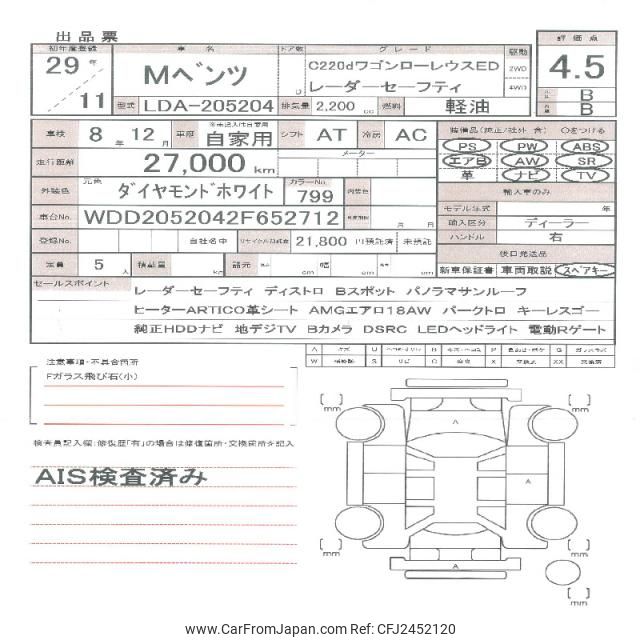 出品票
初年度登録 車名 ドア数 グレード 駆動 評価点
29年 11 Mベンツ C220dワゴンローレウスED レーダーセーフティ 2WD 4WD 4.5
型式 LDA-205204 排気量 2,200 cc 燃料 軽油 B B
車検 8年 12月 車歴 自家用 シフト AT 冷房 AC 装備品(純正/社外 含) ○をつける
PS PW ABS
走行距離 27,000 km メーター エアB AW SR
革 ナビ TV
外装色 元色 ダイヤモンドホワイト カラーNo. 799 内装色 輸入車のみ
モデル年式 年
車台No. WDD2052042F652712 月 輸入区分 ディーラー
ハンドル 右
登録No. 自社名中 リサイクル預託金 21,800 円預託済 未預託 後日発送品
定員 5人 積載量 kg 諸元 長さ cm 幅 cm cm 新車保証書 車両取説 スペアキー
セールスポイント
レーダーセーフティ ディストロ Bスポット パノラマサンルーフ
ヒーターARTICO革シート AMGエアロ18AW パークトロ キーレスゴー
純正HDDナビ 地デジTV Bカメラ DSRC LEDヘッドライト 電動Rゲート
A U B P G
W S C X XX
注意事項・不具合箇所
Fガラス飛び石(小)
検査員記入欄:修復歴「有」の場合は修復箇所・交換箇所を記入
AIS検査済み
[ ] mm [ ] mm
A
A
[ ] mm [ ] mm
A
[ ] mm
www.CarFromJapan.com Ref: CFJ2452120